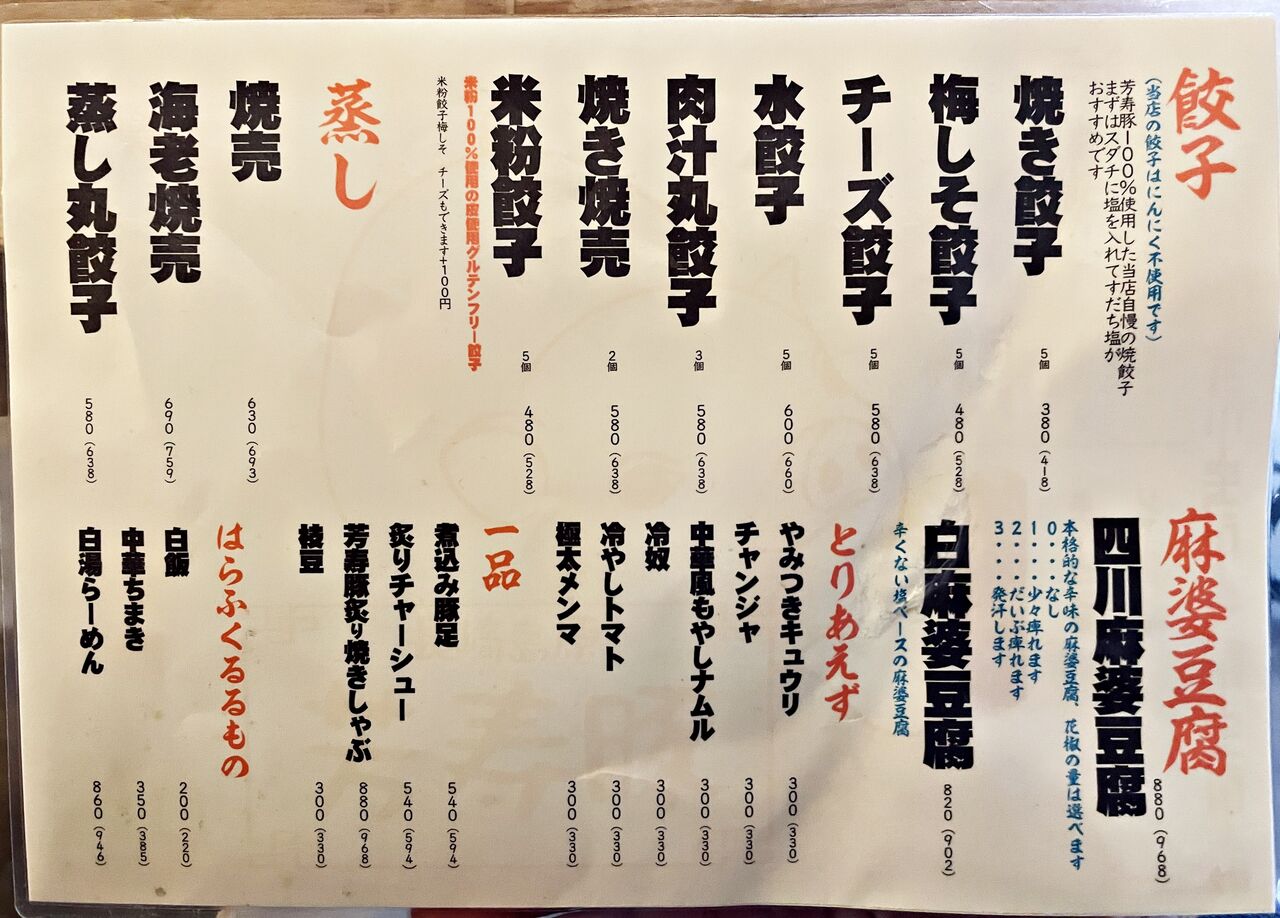 餃子
(当店の餃子はにんにく不使用です)
芳寿豚100%使用した当店自慢の焼餃子
まずはスダチに塩を入れてすだち塩が
おすすめです
焼き餃子 5個 380 (418)
梅しそ餃子 5個 480 (528)
チーズ餃子 5個 580 (638)
水餃子 5個 600 (660)
肉汁丸餃子 3個 580 (638)
焼き焼売 2個 580 (638)
米粉餃子 5個 480 (528)
米粉100%使用の皮使用グルテンフリー餃子
米粉餃子梅しそ チーズもできます+100円
蒸し
焼売 630 (693)
海老焼売 690 (759)
蒸し丸餃子 580 (638)
麻婆豆腐
四川麻婆豆腐 880 (968)
本格的な辛味の麻婆豆腐、花椒の量は選べます
0...なし
1...少々痺れます
2...だいぶ痺れます
3...発汗します
白麻婆豆腐 820 (902)
辛くない塩ベースの麻婆豆腐
とりあえず
やみつきキュウリ 300 (330)
チャンジャ 300 (330)
中華風もやしナムル 300 (330)
冷奴 300 (330)
冷やしトマト 300 (330)
極太メンマ 300 (330)
一品
煮込み豚足 540 (594)
炙りチャーシュー 540 (594)
芳寿豚炙り焼きしゃぶ 880 (968)
枝豆 300 (330)
はらふくるるもの
白飯 200 (220)
中華ちまき 350 (385)
白湯らーめん 860 (946)